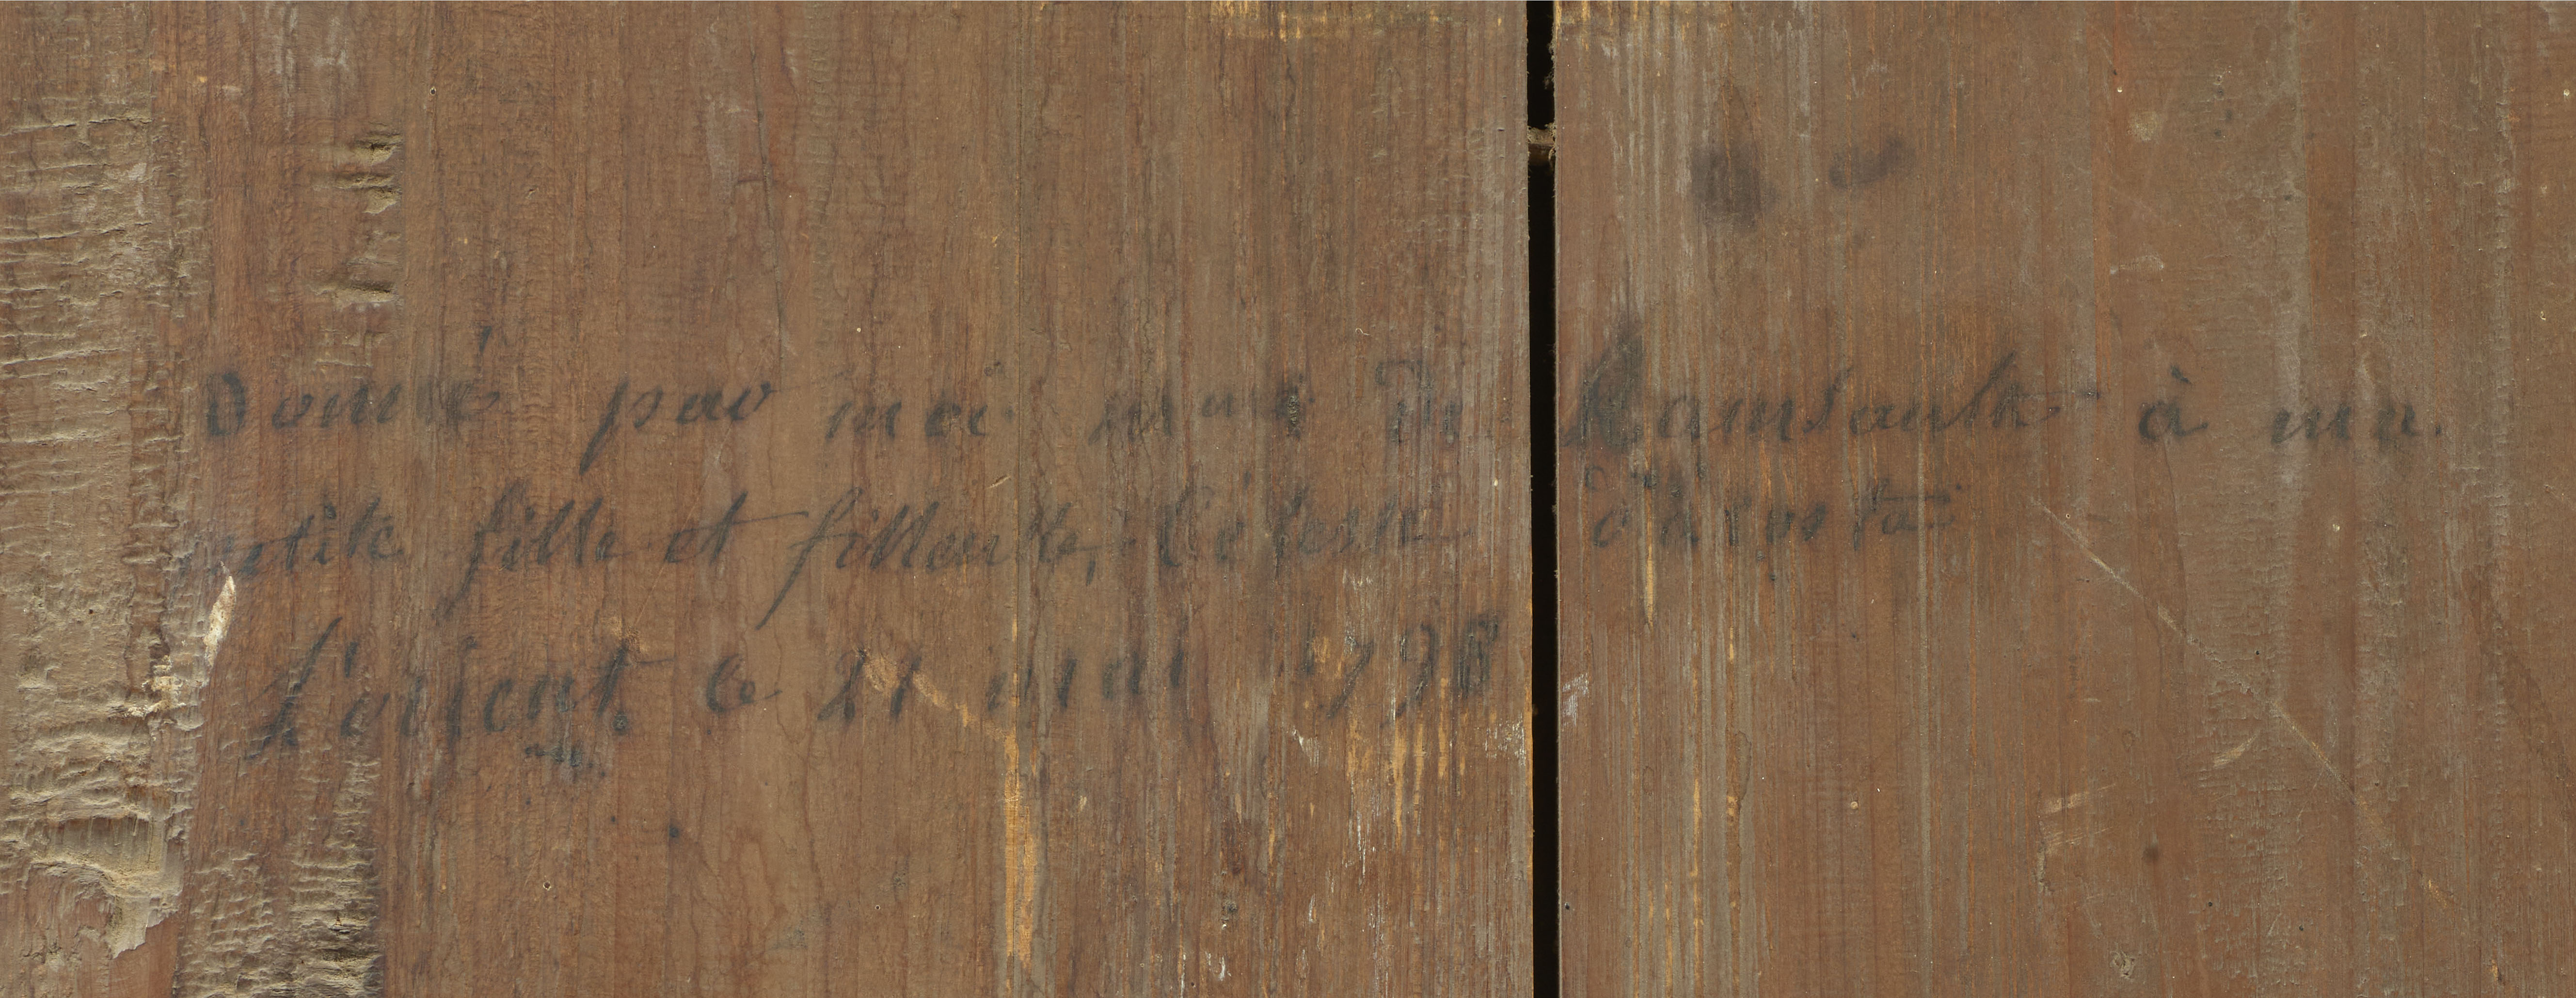 Donné par moi de Ramsault à ma
petite fille et filleule, Céleste
L'orient le 21 mai 179